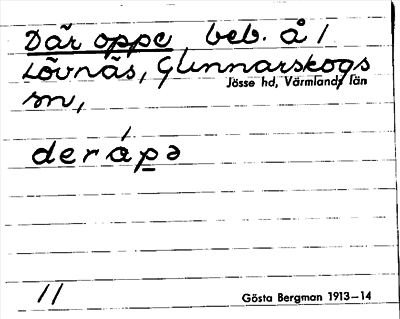 Där oppe, beb. å 1
Lövnäs, Gunnarskogs
Jösse hd, Värmlands län
sn,
der åpə
11
Gösta Bergman 1913–14